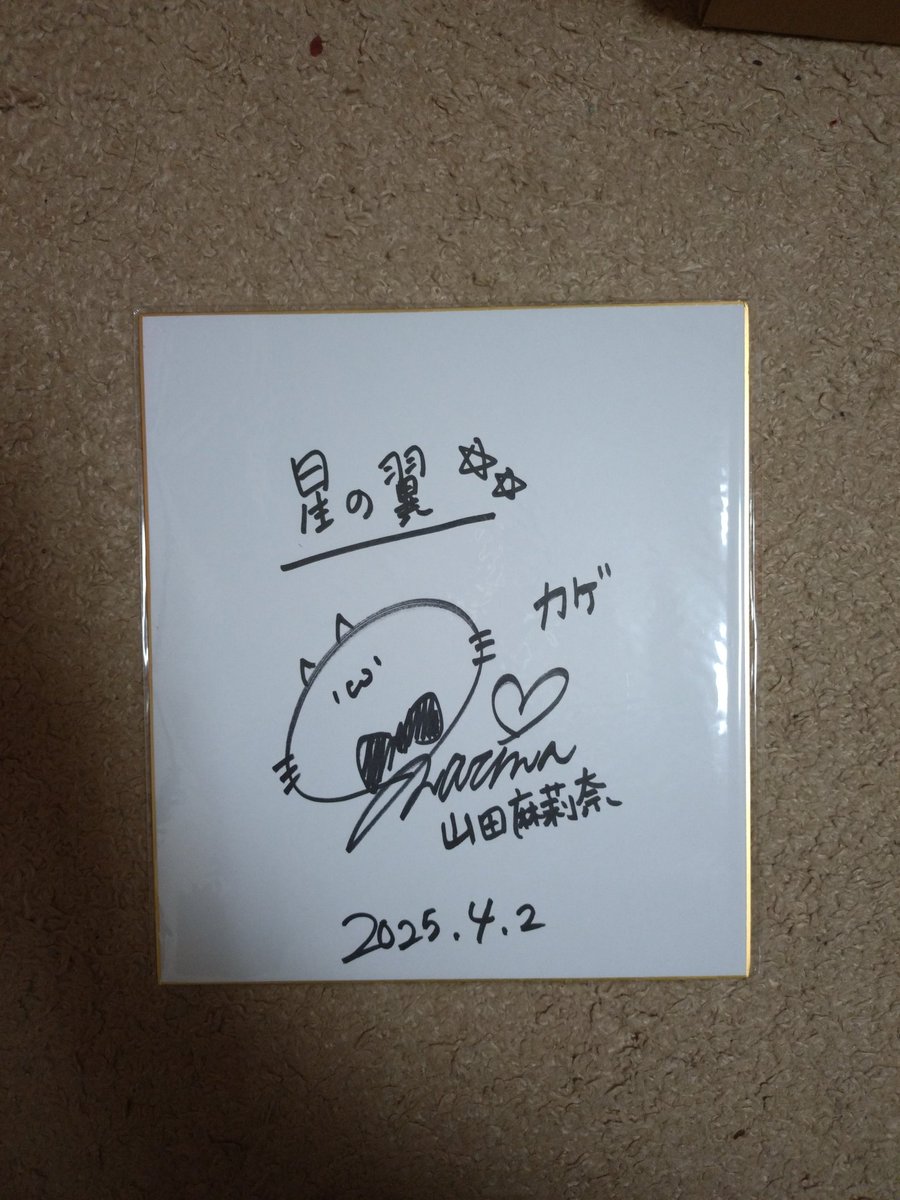 星の翼☆☆
カゲ
山田麻莉奈
2025.4.2